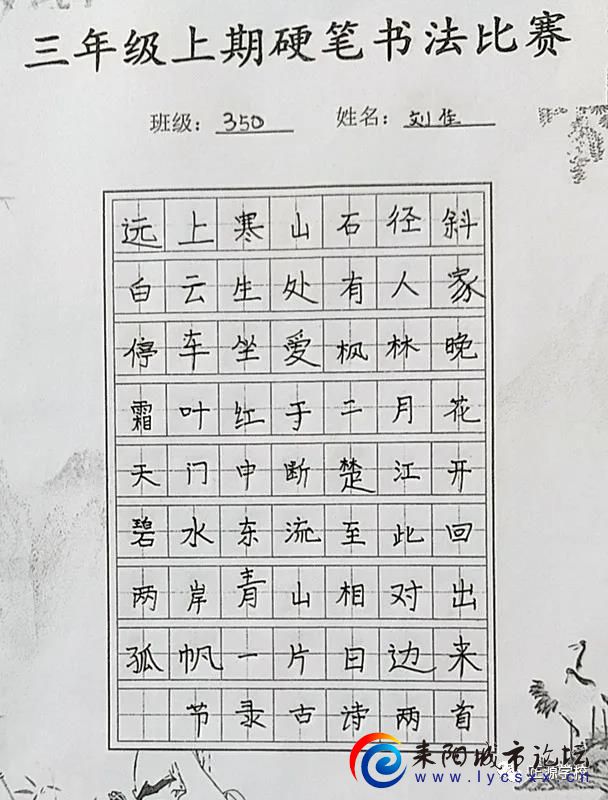 三年级上期硬笔书法比赛
班级：350 姓名：刘佳
远上寒山石径斜
白云生处有人家
停车坐爱枫林晚
霜叶红于二月花
天门中断楚江开
碧水东流至此回
两岸青山相对出
孤帆一片日边来
节录古诗两首
耒阳城市论坛
www.lycsxx.cn
正源学校